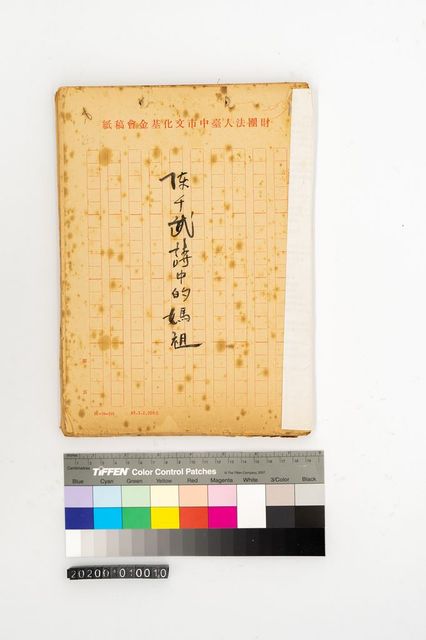 財團法人臺中市文化基金會稿紙
陳千武詩中的媽祖
TIFFEN Color Control Patches
Blue Cyan Green Yellow Red Magenta White 3/Color Black
202001010010